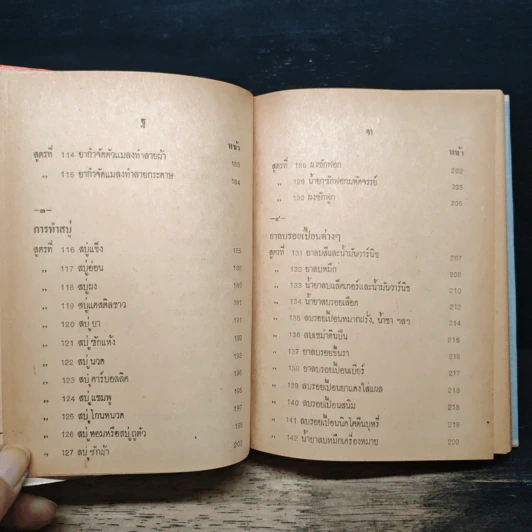 ฐ
หน้า
สูตรที่ 114 ยากำจัดตัวแมลงทำลายผ้า 183
,, 115 ยากำจัดแมลงทำลายกระดาษ 184
-๓-
การทำสบู่
สูตรที่ 116 สบู่แข็ง 185
,, 117 สบู่อ่อน
,, 118 สบู่ผง
,, 119 สบู่แคสติลขาว
,, 120 สบู่ยา
,, 121 สบู่ซักแห้ง
,, 122 สบู่นวด
,, 123 สบู่คาร์บอลลิค
,, 124 สบู่แชมพู
,, 125 สบู่โกนหนวด 199
,, 126 สบู่หอมหรือสบู่ถูตัว
,, 127 สบู่ซักผ้า
หน้า
สูตรที่ ผงซักฟอก 202
,, 129 น้ำยาซักฟอกมหัศจรรย์
,, 130 ผงซักฟูก
-๔-
ยาลบรอยเปื้อนต่างๆ
สูตรที่ 131 ยาลบสีและน้ำมันวาร์นิช 207
,, 132 ยาลบหมึก 208
,, 133 น้ำยาลบแล็คเกอร์และน้ำมันวาร์นิช
,, 134 น้ำยาลบรอยเลือด 212
,, 135 ลบรอยเปื้อนหมากฝรั่ง, น้ำชา ฯลฯ 214
,, 136 ลบเขม่าดินปืน
,, 137 ยาลบรอยขึ้นรา
,, 138 ยาลบรอยเปื้อนเบียร์
,, 139 ลบรอยเปื้อนยาแดงใส่แผล 218
,, 140 ลบรอยเปื้อนสนิม 218
,, 141 ลบรอยเปื้อนนิโคตีนบุหรี่ 219
,, 142 น้ำยาลบหมึกเครื่องหมาย